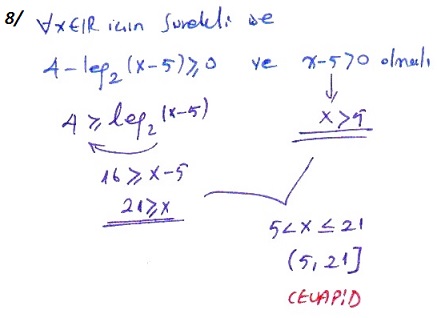 8/ ∀x∈IR için Sürekli ise
4-log₂(x-5)≥0 ve x-5>0 olmalı
4≥log₂(x-5)
x>5
16≥x-5
21≥x
5<x≤21
(5,21]
CEVAP:D